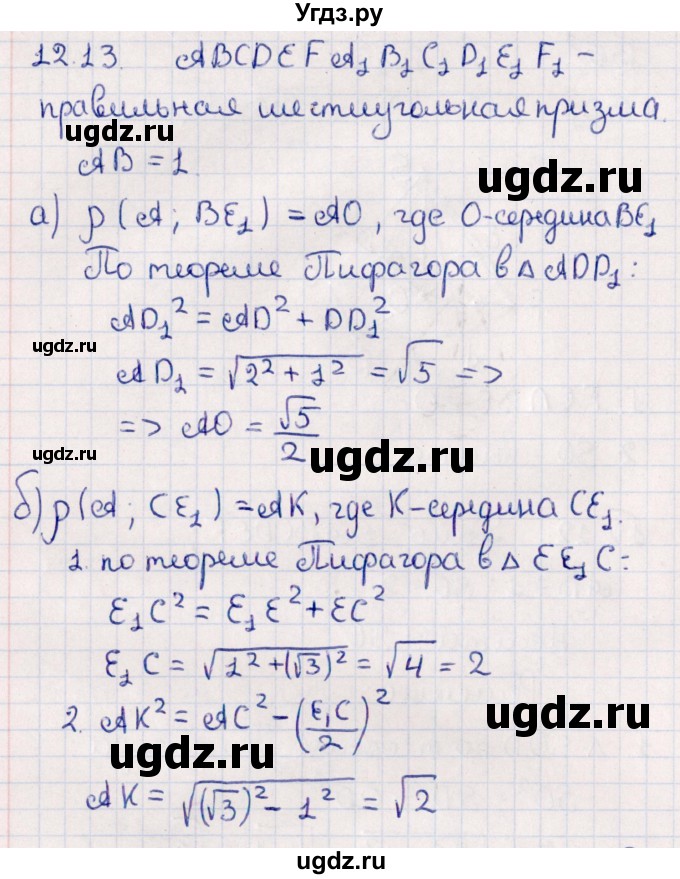 Угдз.ру
12.13. ABCDEFA₁B₁C₁D₁E₁F₁ –
правильная шестиугольная призма.
ugdz.ru ugdz.ru
AB = 1.
а) ρ(A; BE₁) = AO, где O-середина BE₁
По теореме Пифагора в △ ADD₁:
AD₁² = AD² + DD₁²
ugdz.ru ugdz.ru
AD₁ = √(2² + 1²) = √5 =>
=> AO = √5/2
ugdz.ru ugdz.ru ugdz.ru
б) ρ(A; CE₁) = AK, где K-середина CE₁.
1. по теореме Пифагора в △ EE₁C:
E₁C² = E₁E² + EC²
ugdz.ru ugdz.ru
E₁C = √(1² + (√3)²) = √4 = 2
2. AK² = AC² - (E₁C/2)²
ugdz.ru ugdz.ru
AK = √((√3)² - 1²) = √2
ugdz.ru ugdz.ru
ugdz.ru